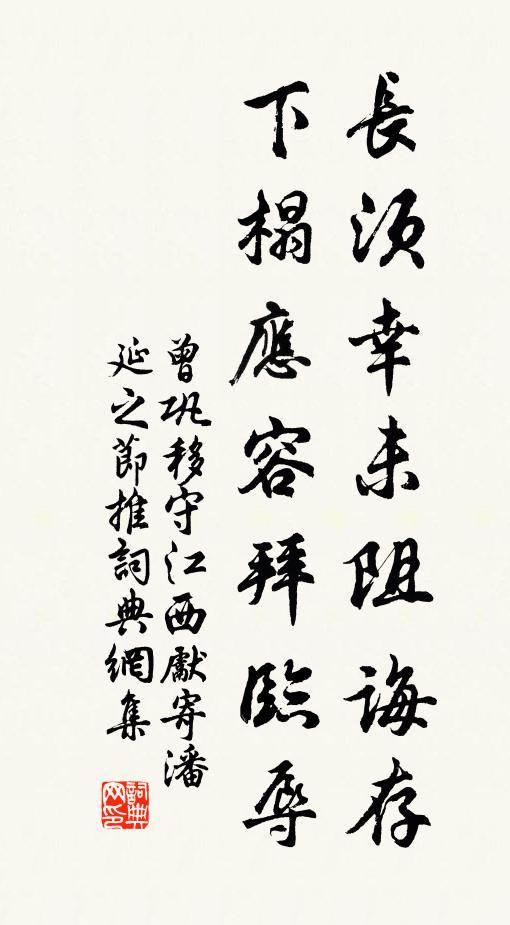 長須幸未阻誨存
下榻應容拜臨辱
曾鞏移守江西獻寄潘
延之節推詞典網集
詞典
网印